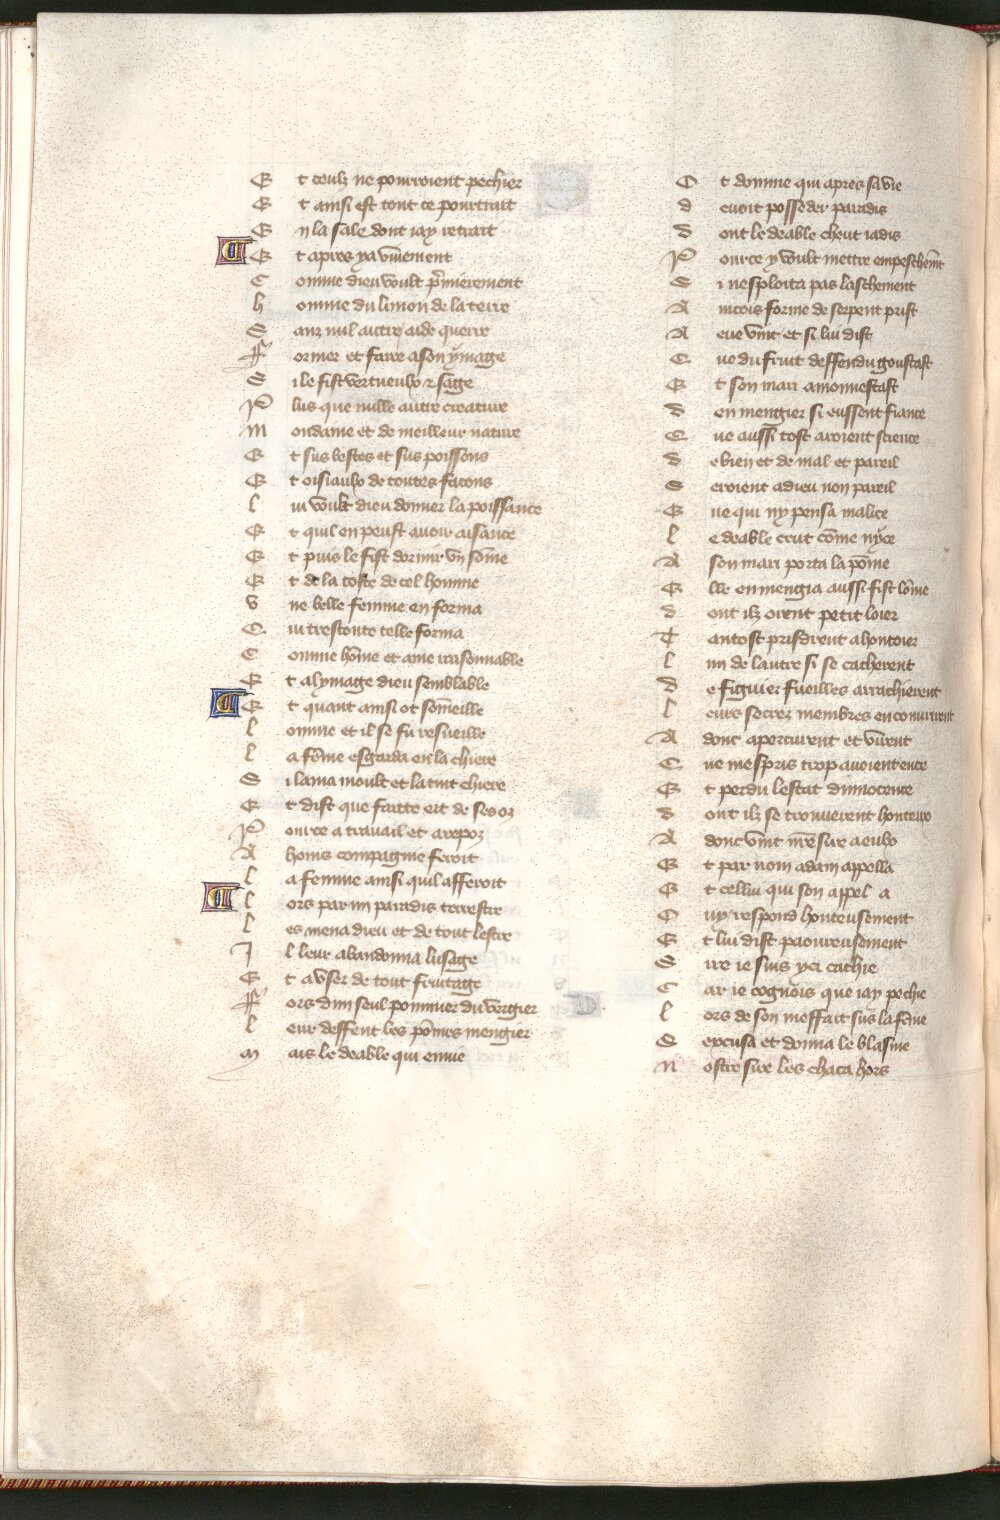 Et ceulz ne pourroient pechier
Et ainsi est tout ce pourtrait
En la sale dont iay retrait
Et apres ya vraiement
Comme dieu voult p̄mierement
homme du limon de la terre
Sanz nul autre aide querre
Former et faire a son ymage
Si le fist vertueulx & sage
Plus que nulle autre creature
Mondaine et de meilleur nature
Et sus bestes et sus poissons
Et oisiaulx de toutes facons
lui voult dieu donner la poissance
Et quil en peust auoir aisance
Et puis le fist dormir vn sōme
Et de la coste de cel homme
vne belle femme en forma
Cui trestoute telle forma
Comme hōme et ame raisonnable
Et a lymage dieu semblable
Et quant ainsi ot sōmeille
lomme et il se fu resueille
la fēme esgarda en la chiere
Si lama moult et la tint chiere
Et dist que faitte ert de ses oz
Pource a trauail et a repoz
A homs compagnie feroit
la femme ainsi quil afferoit
lors par mi paradis terrestre
les mena dieu et de tout lestre
Il leur abandonna lusage
Et a vser de tout fruitage
Fors dun seul pommier du vergier
leur deffent les pōmes mengier
Mais le deable qui enuie
Ot domme qui apres sa vie
deuoit posseder paradis
dont le deable cheut iadis
Pource y voult mettre empeschemt
Si nesploita pas laschement
Aincois forme de serpent prist
A eue vint et si lui dist
Que du fruit deffendu goustast
Et son mari amonnestast
den mengier si eussent fiance
Que aussi tost aroient science
de bien et de mal et pareil
Seroient a dieu non pareil
Eue qui ny pensa malice
le deable crut cōme nyce
A son mari porta la pōme
Elle en menga aussi fist lōme
dont ilz orent petit loier
Tantost prisdrent a hontoier
lun de lautre si se cacherent
de figuier fueilles arrachierent
leurs secrez membres en couurirent
Adonc apercurent et virent
Que mespris trop auoient eue
Et perdu lestat dinnocence
dont ilz se trouuerent honteux
Adonc vint nr̄e sire a eulx
Et par nom adam appella
Et cellui qui son appel a
Ouy respond honteusement
Et lui dist paoureusement
Sire ie suis yci cachie
Car ie cognois que iay pechie
lors de son meffait sus la fēme
Sexcusa et donna le blasme
Nostre sire les chaca hors